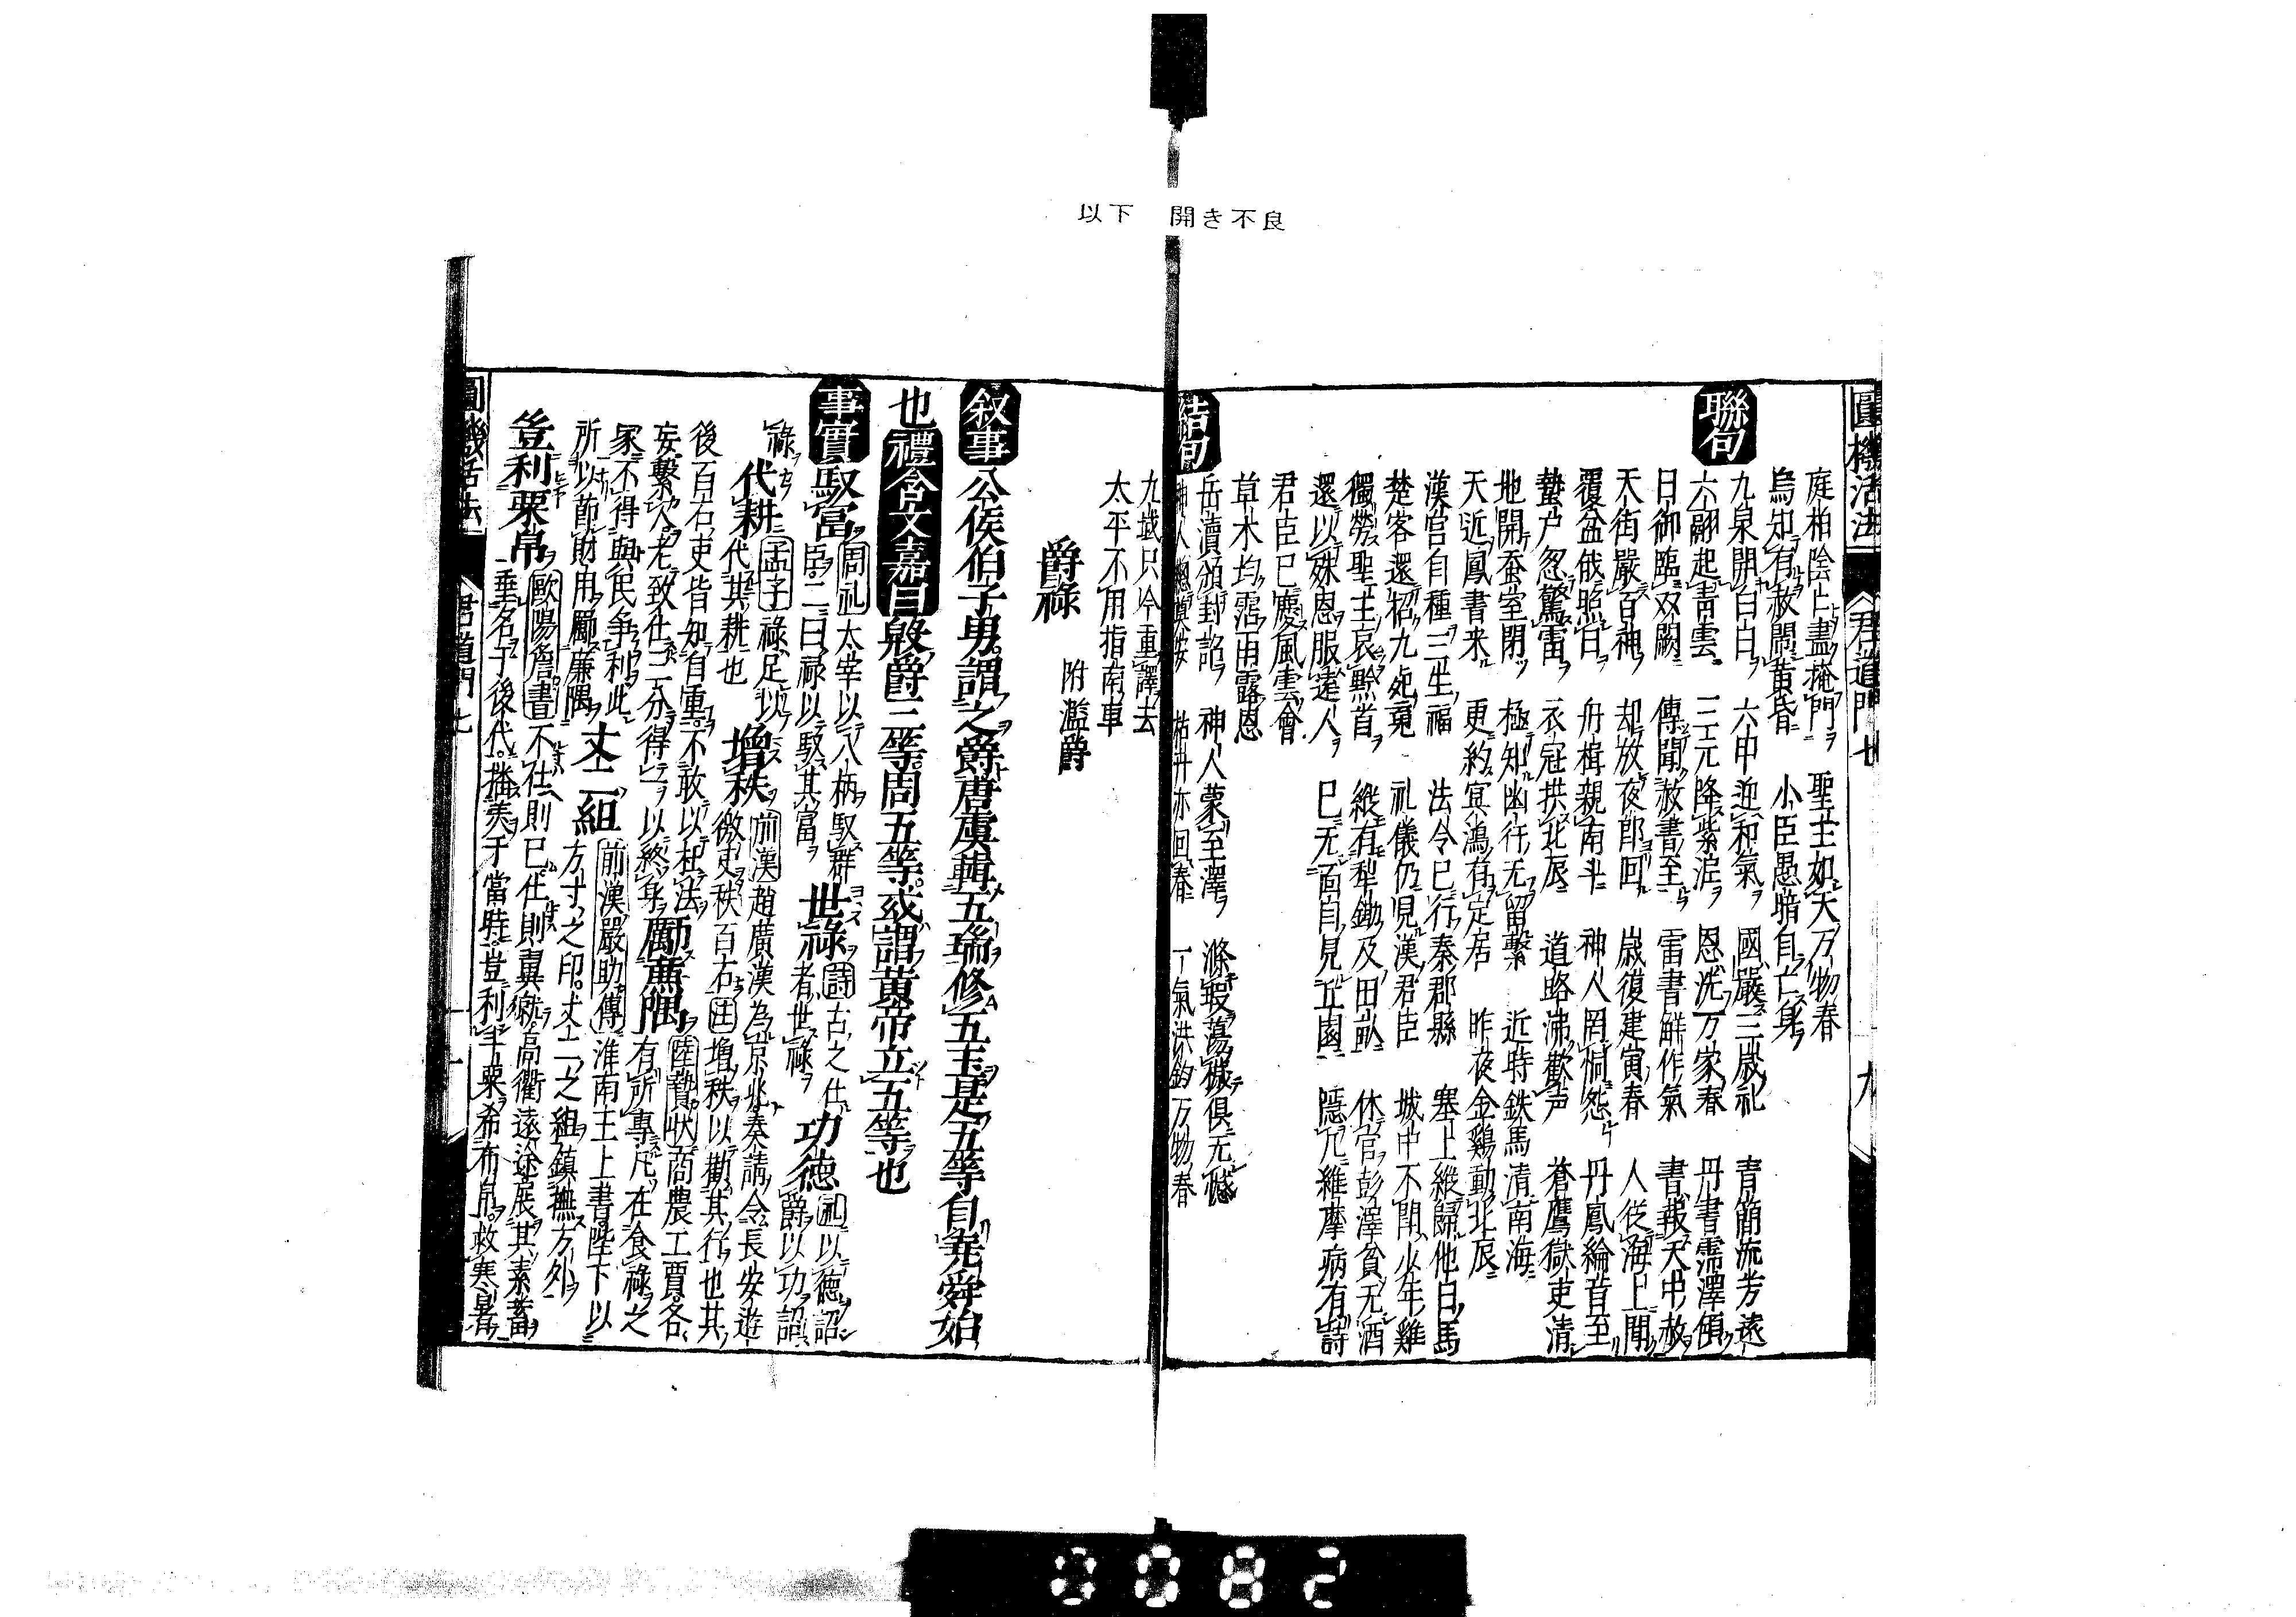 以下 開き不良
圓機活法 君道門七 九
庭柏陰陰盡掩門 聖主如天万物春
烏知有赦開黄昏 小臣愚暗自亡身
聯句
九泉開白白 六甲迎和氣 國嚴三歳祀 青簡流芳遠
六翮起青雲 三元降紫泥 恩洗万家春 丹書霈澤傾
日御臨双闕 傳聞赦書至 雷書觧作氣 書報天中赦
天街嚴百神 却放夜郎回 歳復建寅春 人從海上聞
覆盆俄照白 舟楫親南斗 神人罔恫怨 丹鳳綸音至
蟄户忽驚雷 衣冠拱北辰 道路沸歡声 蒼鷹獄吏清
地開蚕室閉 極知幽行无留繫 近時鉄馬清南海
天近鳳書来 更約冥鴻有定居 昨夜金鷄動北辰
漢宫自種三生福 法令已行秦郡縣 塞上縱歸他日馬
楚客還招九死䰟 礼儀仍見漢君臣 城中不閗少年雞
獨勞聖主哀黔首 縱有犁鋤及田畝 休官彭澤貧无酒
還以殊恩服遠人 已无面自見丘園 隱几維摩病有詩
君臣已慶風雲會
草木均霑雨露恩
結句
岳瀆頒封詔 神人蒙至澤 滌瑕蕩穢俱无憾
神人 枯卉亦回春 一氣洪鈞万物春
九域只今重譯去
太平不用指南車
爵祿 附濫爵
叙事 公侯伯子男謂之爵唐虞輯五瑞修五玉是五等自尭舜始
也 禮含文嘉曰 殷爵三等周五等或謂黄帝立五等也
事實 馭富 周礼 太宰以八柄馭群臣二曰祿以馭其富 世祿 詩 古之仕者世祿 功德 礼 以德詔爵以功詔
祿 代耕 孟子 祿足以代其耕也 增秩 前漢 趙廣漢為京兆奏請令長安遊徼吏秩百石 注 增秩以勸其行也其
後百石吏皆知自重不敢以枉法妄繫人老致仕三分得一以終身 勵廉隅 陸贄状 商農工賈各有所專凡在食祿之
家不得與民争利此所以節財用勵廉隅 丈二組 前漢嚴助傳 淮南王上書陛下以方寸之印丈二之組鎮撫方外
豈利粟帛 歐陽詹書 不仕則已仕則冀就高衢遠途展其素蓄垂名于後代播美于當時豈利斗粟希布帛救寒暑
圓機活法 君道門七
0082